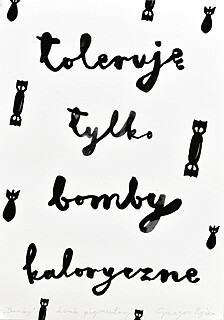 toleruję
tylko
bomby
kaloryczne